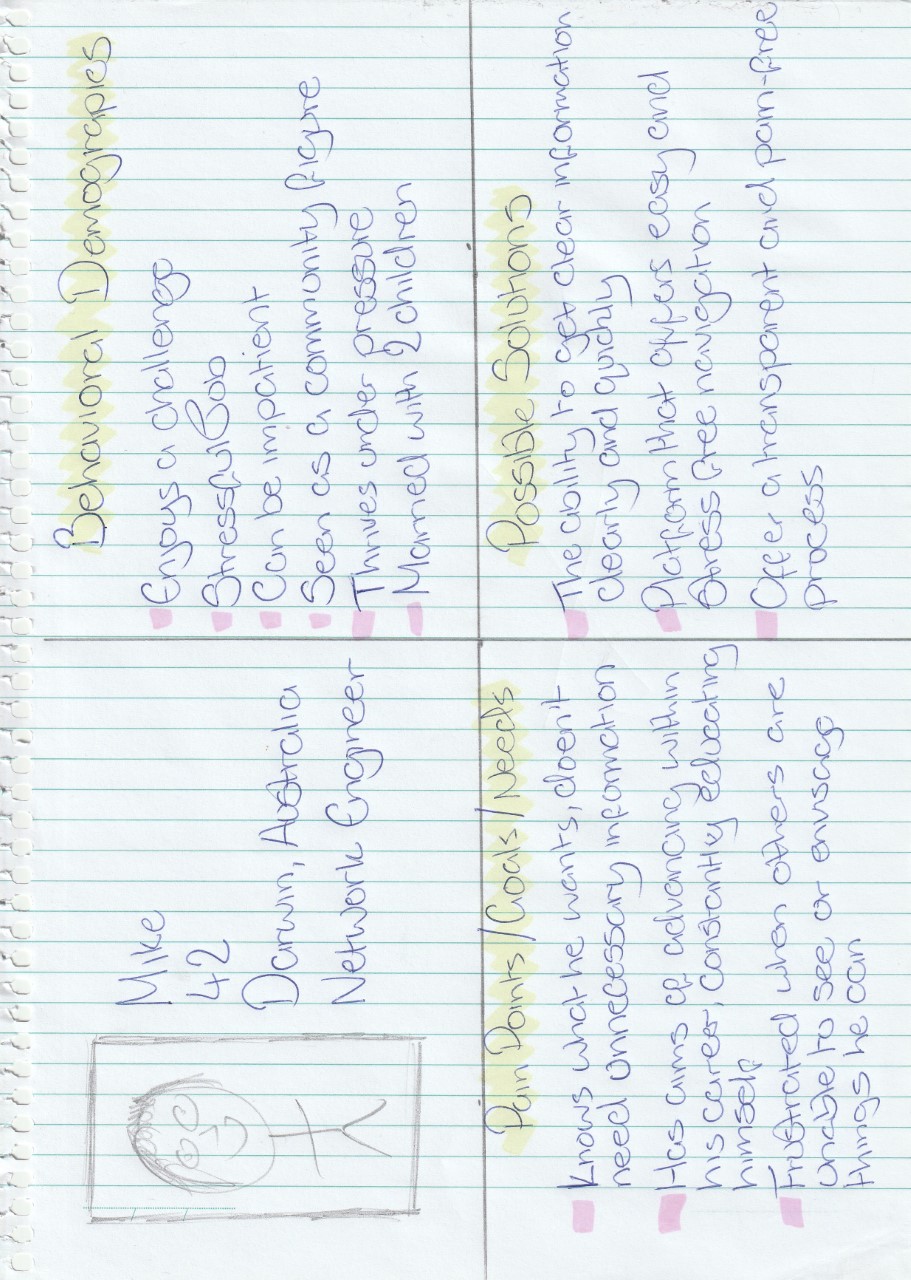 Mike
42
Darwin, Australia
Network Engineer
Behavioral Demograpies
Enjoys a challenge
Stressful Job
Can be impatient
Seen as a community figure
Thrives under pressure
Married with 2 children
Pain Points/Goals/Needs
Knows what he wants, doen't
need unnecessary information
Has aims of advancing within
his career, constantly educating
himself
Frustrated when others are
unable to see or envisage
things he can
Possible Solutions
The ability to get clear information
clearly and quickly
Platform that offers easy and
stress free navigation
Offer a transparent and pain-free
process